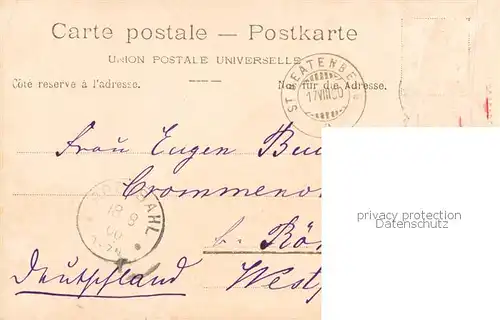 Carte postale — Postkarte
UNION POSTALE UNIVERSELLE
Côté réservé à l'adresse. Nur für die Adresse.
ST. BEATENBERG
17 VIII 00
Frau Eugen
Crommeno
DAHL
18 8
00
b. Rö
Deutschland West
privacy protection
Datenschutz